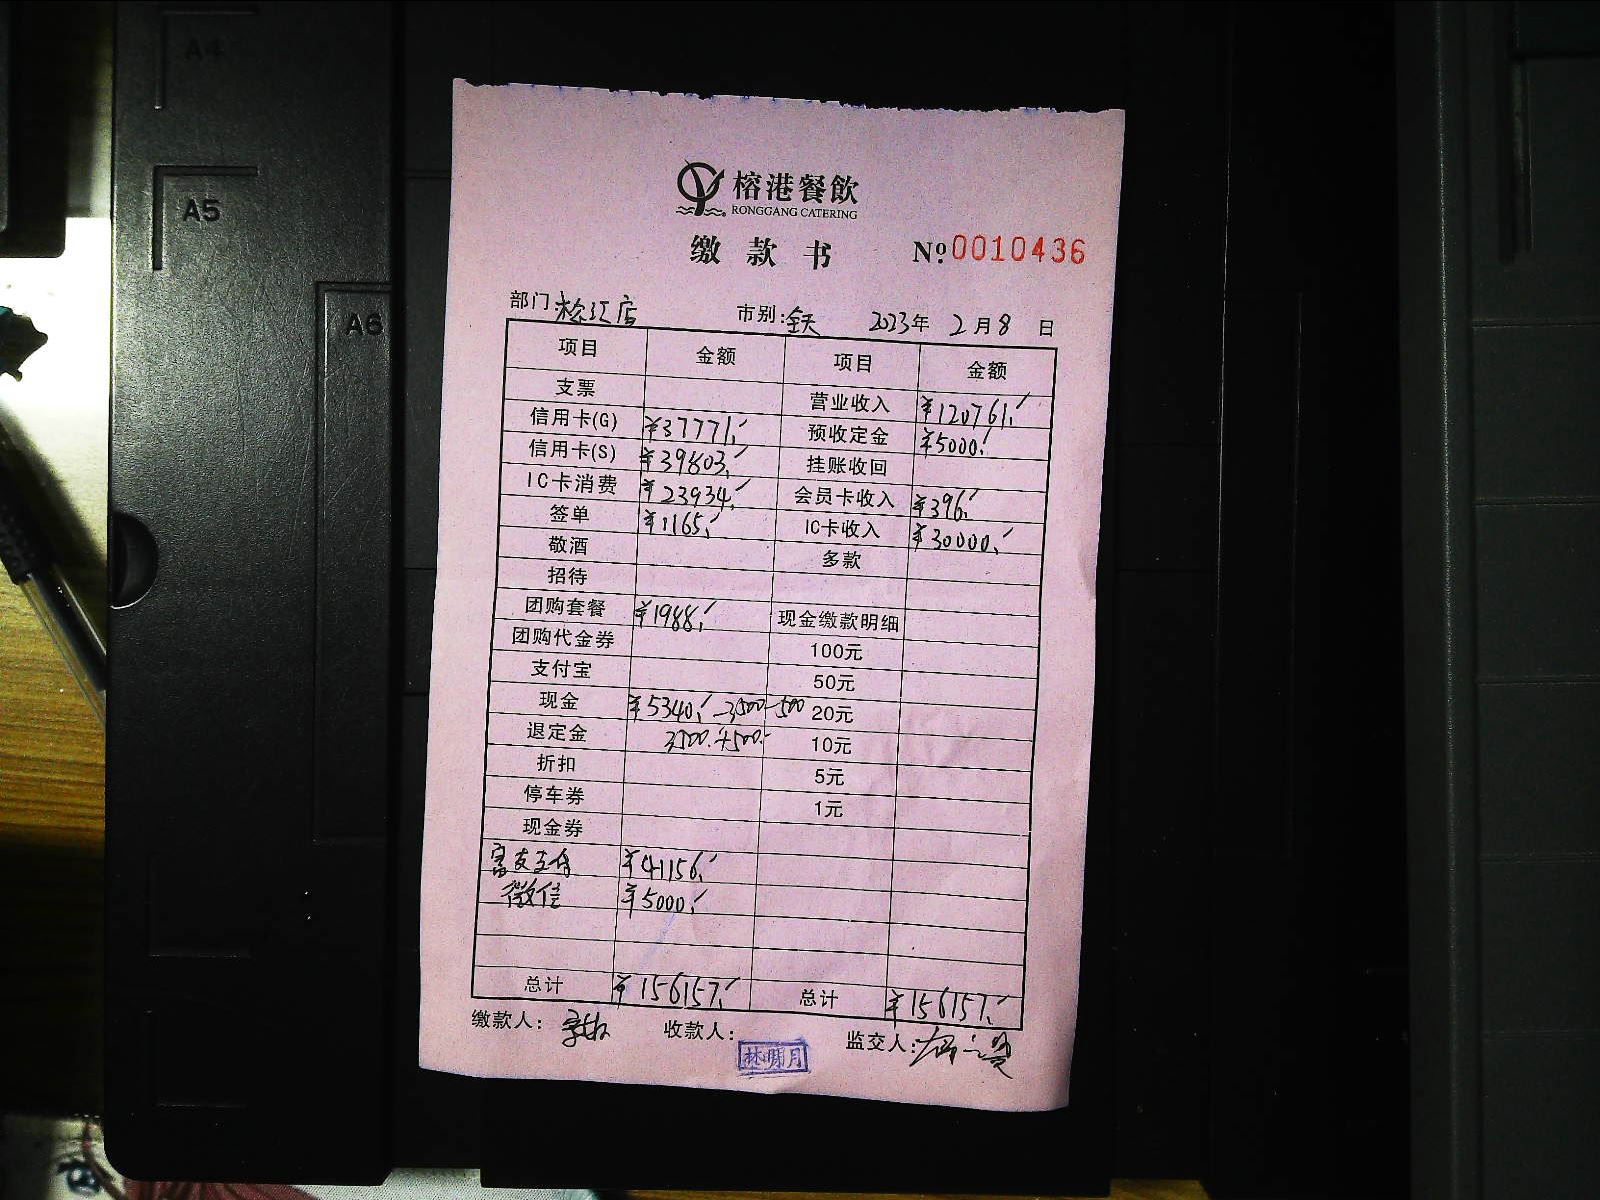 A4
A5
A6
榕港餐飲
RONGGANG CATERING
缴款书 Nº 0010436
部门 松江店 市别: 全天 2023年 2月8日
项目 金额 项目 金额
支票 营业收入 ¥120761.
信用卡(G) ¥37771. 预收定金 ¥5000.
信用卡(S) ¥39803. 挂账收回
IC卡消费 ¥23934. 会员卡收入 ¥396.
签单 ¥1165. IC卡收入 ¥30000.
敬酒 多款
招待
团购套餐 ¥1988. 现金缴款明细
团购代金券 100元
支付宝 50元
现金 ¥5340. -3500-500 20元
退定金 3500.+500. 10元
折扣 5元
停车券 1元
现金券
¥41156.
微信 ¥5000.
总计 ¥156157. 总计 ¥156157.
缴款人: 收款人: 林明月 监交人: